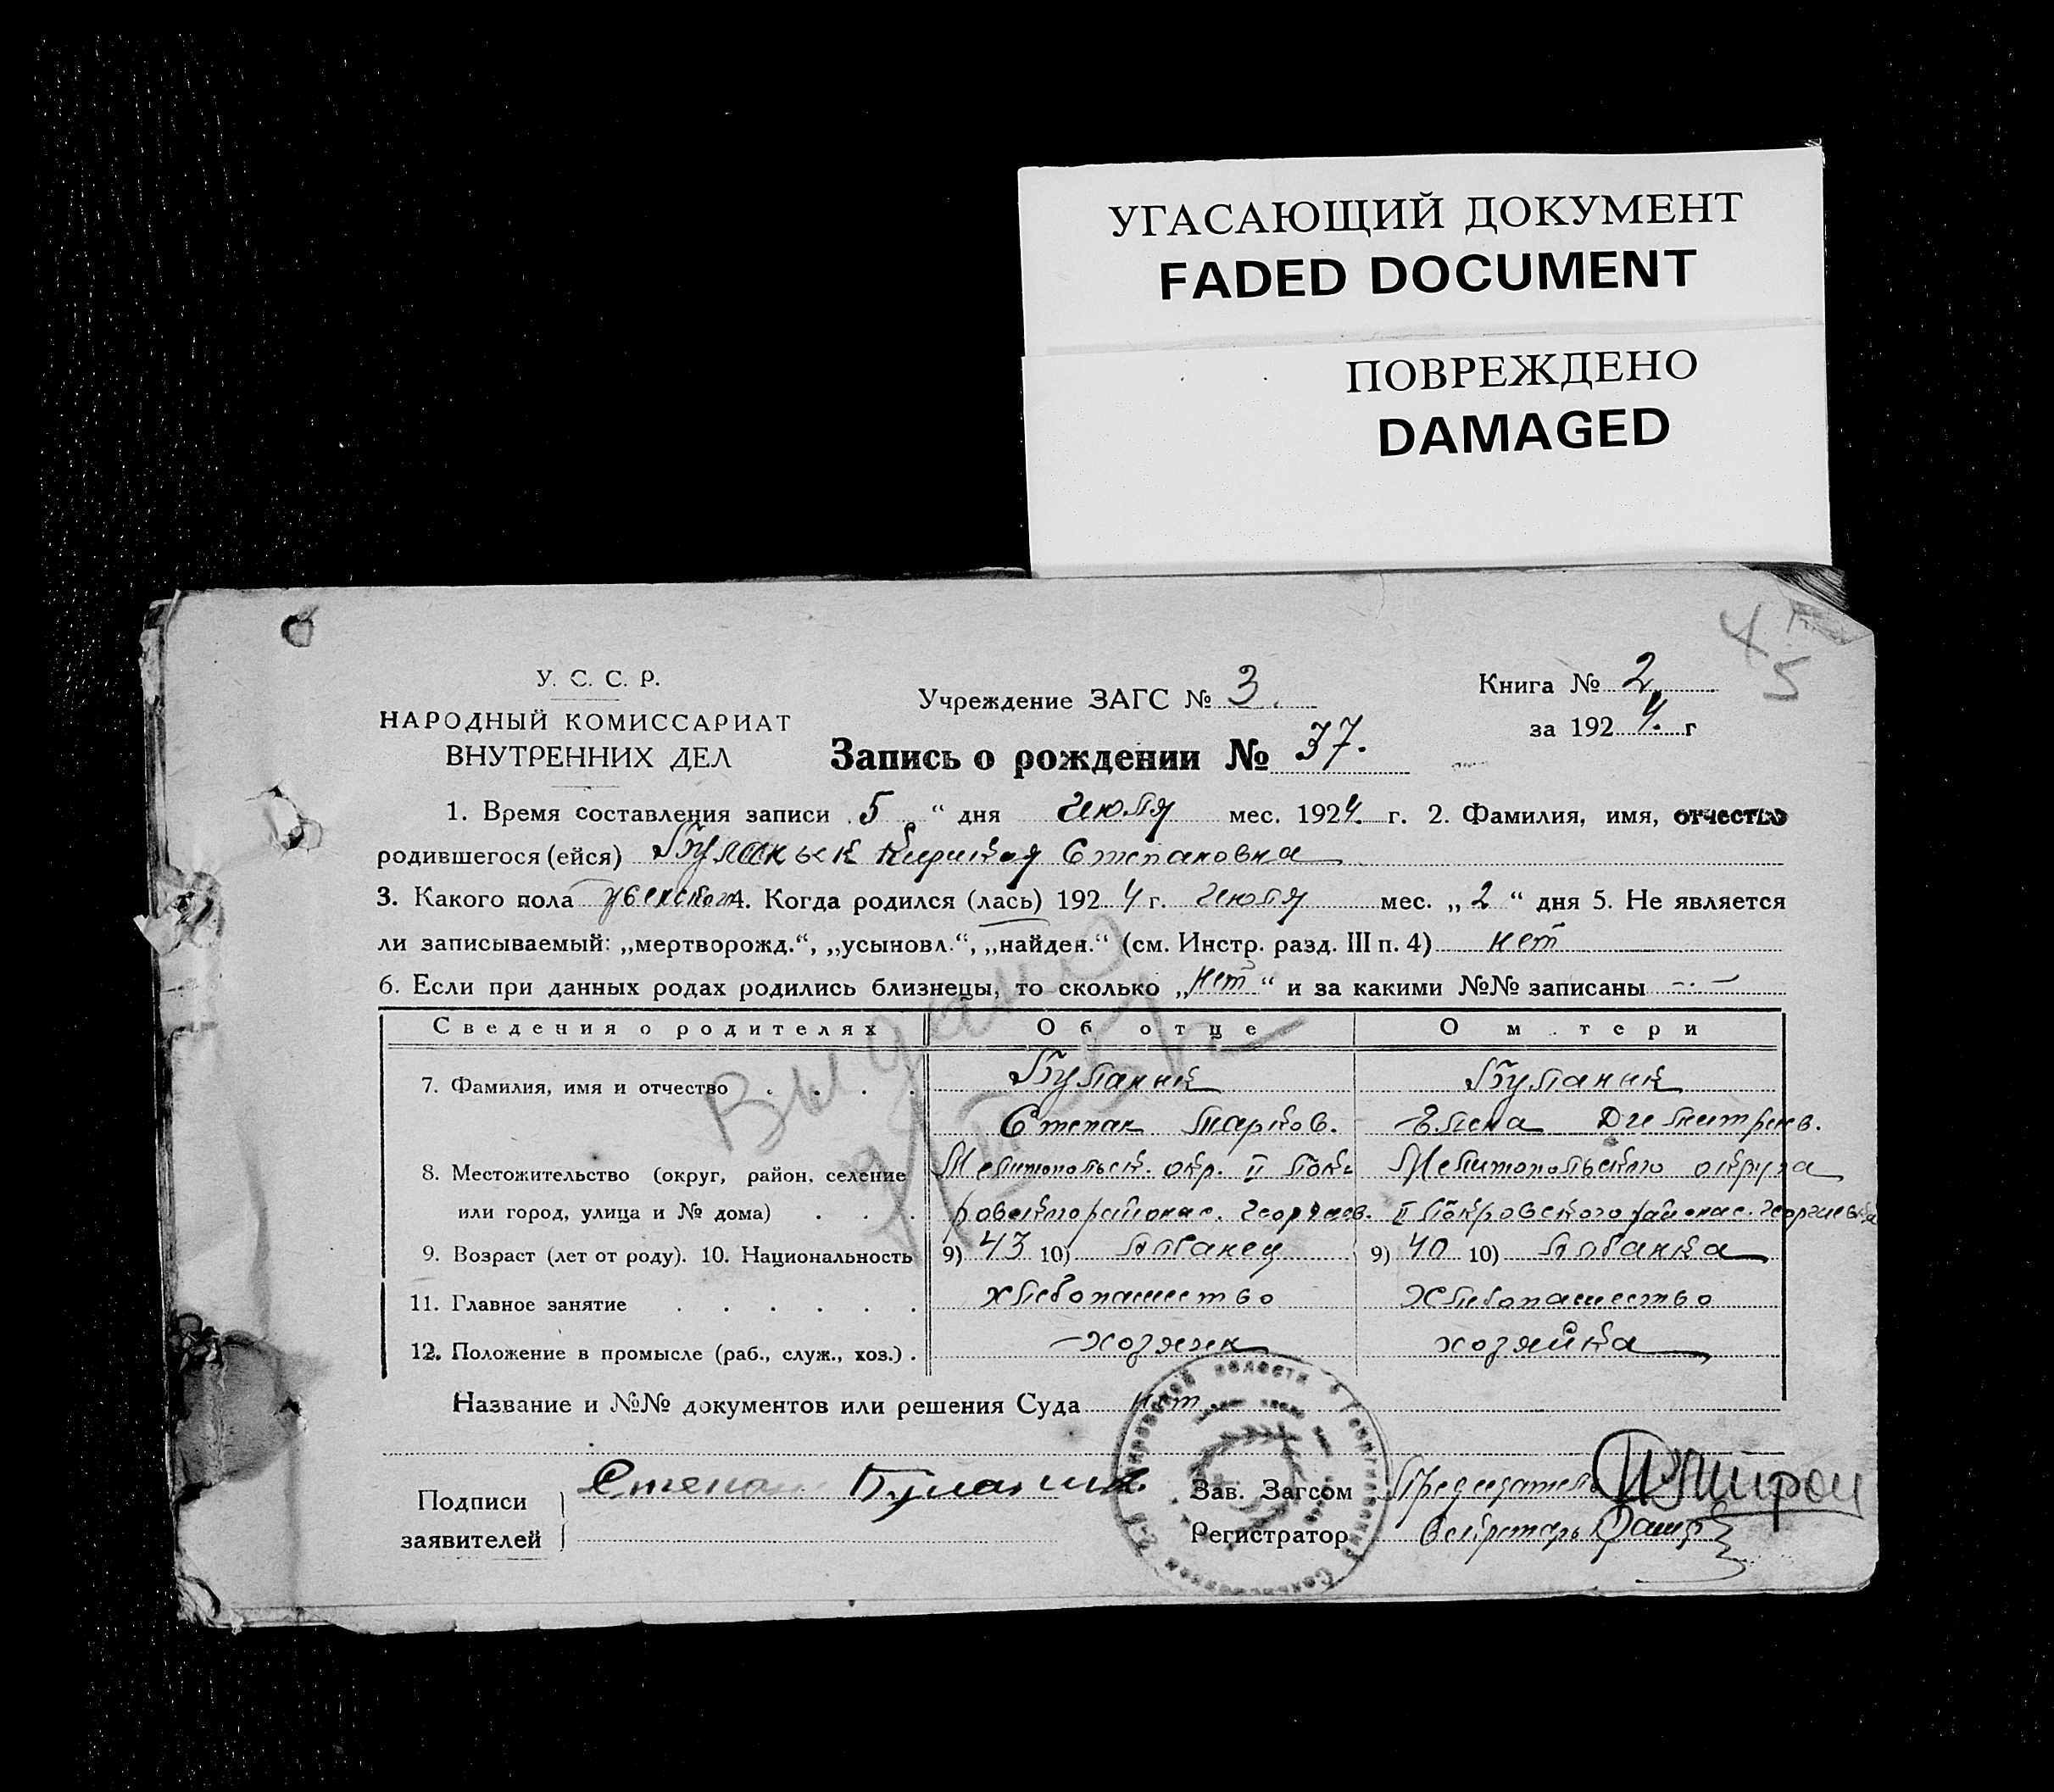 УГАСАЮЩИЙ ДОКУМЕНТ
FADED DOCUMENT
ПОВРЕЖДЕНО
DAMAGED
45
У. С. С. Р.
НАРОДНЫЙ КОМИССАРИАТ
ВНУТРЕННИХ ДЕЛ
Учреждение ЗАГС № 3.
Книга № 2
за 1924. г
Запись о рождении № 37.
1. Время составления записи 5 “ дня Июля мес. 1924. г. 2. Фамилия, имя, отчество
родившегося (ейся) Степановна
3. Какого пола женского 4. Когда родился (лась) 1924 г. Июля мес. „ 2 “ дня 5. Не является
ли записываемый: „мертворожд.“, „усыновл.“, „найден.“ (см. Инстр. разд. III п. 4) нет
6. Если при данных родах родились близнецы, то сколько „ нет “ и за какими №№ записаны -.-
Сведения о родителях Об отце О м.тери
7. Фамилия, имя и отчество . . . . Буланик Буланик
Степан Марков. Елена Димитриев.
8. Местожительство (округ, район, селение Мелитопольск. окр. II Пок- Мелитопольского округа
или город, улица и № дома) . . . ровского района с. Георгиев. II Покровского района с. Георгиевка
9. Возраст (лет от роду). 10. Национальность 9) 43 10) Албанец 9) 40 10) Албанка
11. Главное занятие . . . . . . Хлебопашество Хлебопашество
12. Положение в промысле (раб., служ., хоз.) . хозяин хозяйка
Выдано
Название и №№ документов или решения Суда нет
Подписи заявителей Степан Буланик
Зав. Загсом Председатель
Регистратор Секретарь